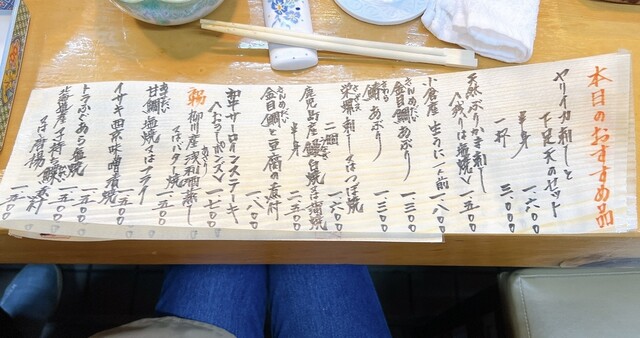 本日のおすすめ品
ヤリイカ刺しと
下足天のセット
半身 一六〇〇
一杯 三、〇〇〇
天然ぶりかま刺し
<残りは塩焼> 一五〇〇
小倉産 生うに一人前 一八〇〇
きんめだい
金目鯛あぶり 一三〇〇
さわら
鰆あぶり 一三〇〇
栄螺刺し又はつぼ焼
二個 一六〇〇
鹿児島産 鰻白焼き又は蒲焼
半身 二五〇〇
きんめだい
金目鯛と豆腐の煮付 一八〇〇
和牛サーロインステーキ
<おろしポンズ> 一七〇〇
あさり
柳川産 浅利酒蒸し
又はバター焼 一五〇〇
あまだい
甘鯛塩焼又はフライ 一五〇〇
イサキ西京味噌漬焼 一五〇〇
トラふぐあら塩焼
又は唐揚 一五〇〇
北海道産 子持ち鰈煮付 一五〇〇